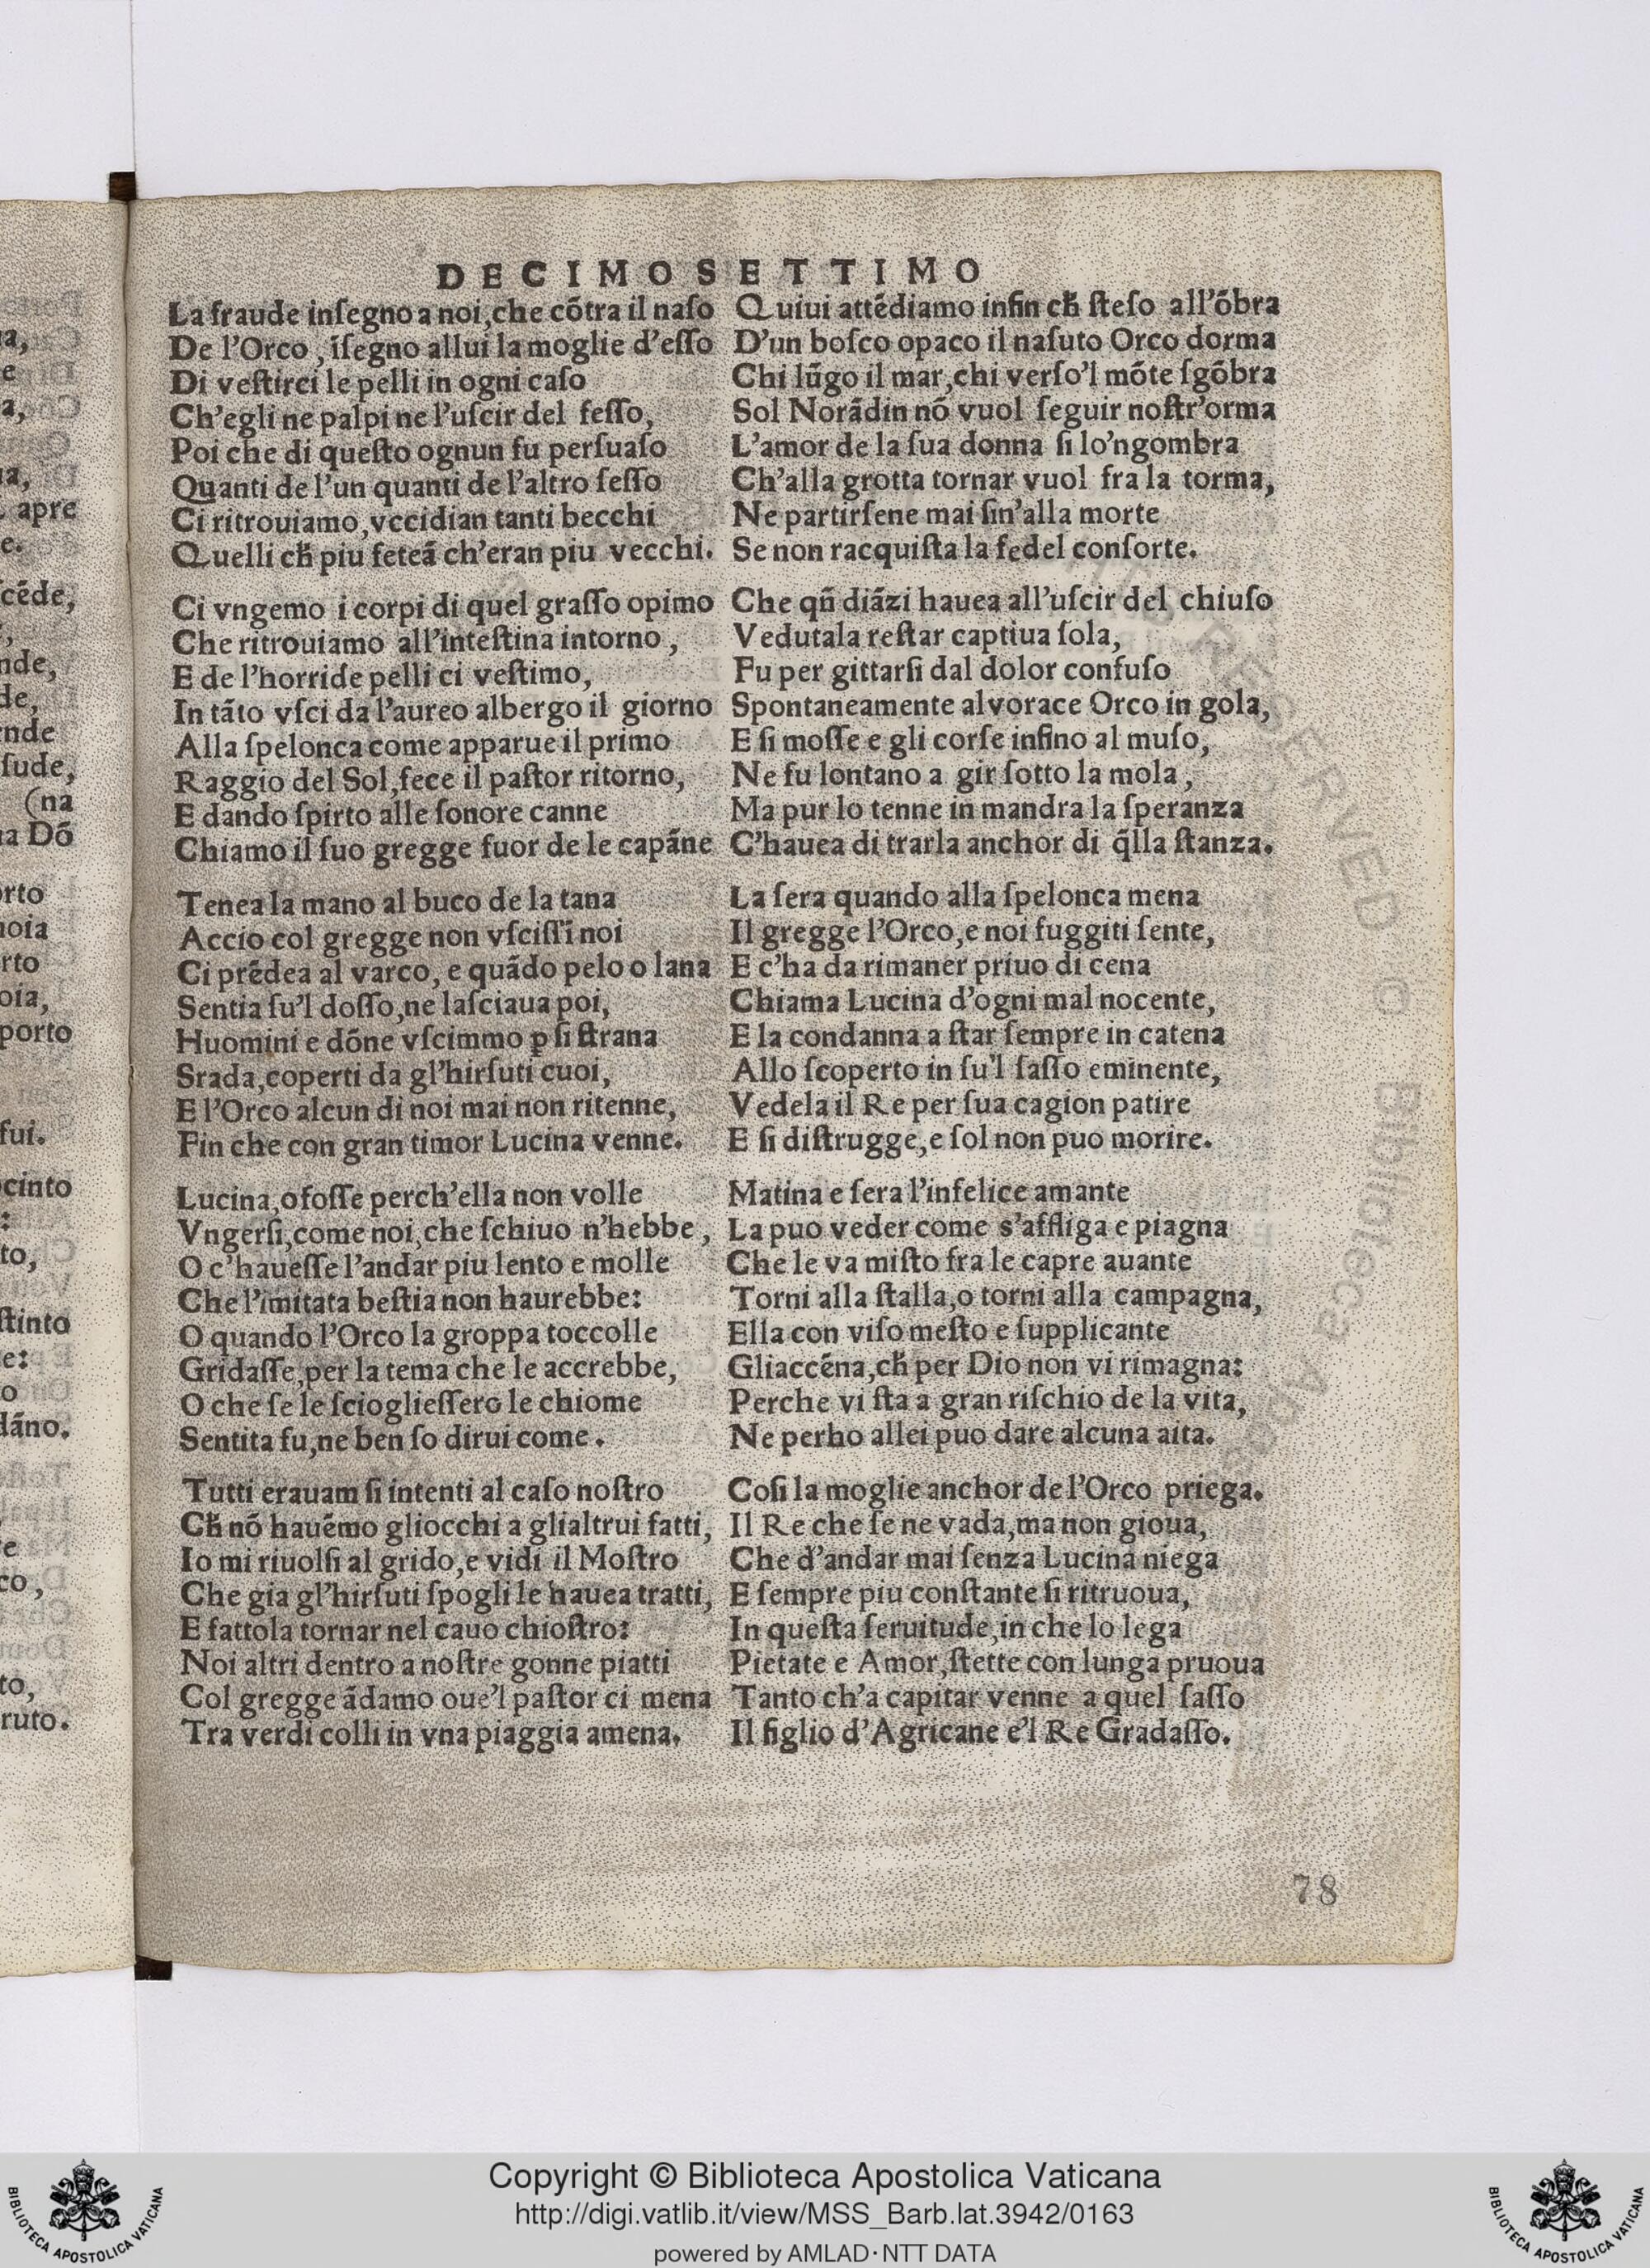 DECIMOSETTIMO
La fraude inſegno a noi, che cōtra il naſo
De l'Orco, īſegno allui la moglie d'eſſo
Di veſtirci le pelli in ogni caſo
Ch'egli ne palpi ne l'uſcir del feſſo,
Poi che di queſto ognun fu perſuaſo
Quanti de l'un quanti de l'altro ſeſſo
Ci ritrouiamo, vccidian tanti becchi
Quelli ch̄ piu feteā ch'eran piu vecchi.
Ci vngemo i corpi di quel graſſo opimo
Che ritrouiamo all'inteſtina intorno,
E de l'horride pelli ci veſtimo,
In tāto vſci da l'aureo albergo il giorno
Alla ſpelonca come apparue il primo
Raggio del Sol, fece il paſtor ritorno,
E dando ſpirto alle ſonore canne
Chiamo il ſuo gregge fuor de le capāne
Tenea la mano al buco de la tana
Accio col gregge non vſciſſī noi
Ci prēdea al varco, e quādo pelo o lana
Sentia ſu'l doſſo, ne laſciaua poi,
Huomini e dōne vſcimmo ꝑ ſi ſtrana
Srada, coperti da gl'hirſuti cuoi,
E l'Orco alcun di noi mai non ritenne,
Fin che con gran timor Lucina venne.
Lucina, o foſſe perch'ella non volle
Vngerſi, come noi, che ſchiuo n'hebbe,
O c'haueſſe l'andar piu lento e molle
Che l'imitata beſtia non haurebbe:
O quando l'Orco la groppa toccolle
Gridaſſe, per la tema che le accrebbe,
O che ſe le ſcioglieſſero le chiome
Sentita fu, ne ben ſo dirui come.
Tutti erauam ſi intenti al caſo noſtro
Ch̄ nō hauēmo gliocchi a glialtrui fatti,
Io mi riuolſi al grido, e vidi il Moſtro
Che gia gl'hirſuti ſpogli le hauea tratti,
E fattola tornar nel cauo chioſtro:
Noi altri dentro a noſtre gonne piatti
Col gregge ādamo oue'l paſtor ci mena
Tra verdi colli in vna piaggia amena.
Quiui attēdiamo infin ch̄ ſteſo all'ōbra
D'un boſco opaco il naſuto Orco dorma
Chi lūgo il mar, chi verſo'l mōte ſgōbra
Sol Norādin nō vuol ſeguir noſtr'orma
L'amor de la ſua donna ſi lo'ngombra
Ch'alla grotta tornar vuol fra la torma,
Ne partirſene mai ſin'alla morte
Se non racquiſta la fedel conſorte.
Che qn̄ diāzi hauea all'uſcir del chiuſo
Vedutala reſtar captiua ſola,
Fu per gittarſi dal dolor confuſo
Spontaneamente al vorace Orco in gola,
E ſi moſſe e gli corſe infino al muſo,
Ne fu lontano a gir ſotto la mola,
Ma pur lo tenne in mandra la ſperanza
C'hauea di trarla anchor di q̄lla ſtanza.
La ſera quando alla ſpelonca mena
Il gregge l'Orco, e noi fuggiti ſente,
E c'ha da rimaner priuo di cena
Chiama Lucina d'ogni mal nocente,
E la condanna a ſtar ſempre in catena
Allo ſcoperto in ſu'l ſaſſo eminente,
Vedela il Re per ſua cagion patire
E ſi diſtrugge, e ſol non puo morire.
Matina e ſera l'infelice amante
La puo veder come s'affliga e piagna
Che le va miſto fra le capre auante
Torni alla ſtalla, o torni alla campagna,
Ella con viſo meſto e ſupplicante
Gliaccēna, ch̄ per Dio non vi rimagna:
Perche vi ſta a gran riſchio de la vita,
Ne perho allei puo dare alcuna aita.
Coſi la moglie anchor de l'Orco priega.
Il Re che ſe ne vada, ma non gioua,
Che d'andar mai ſenza Lucina niega
E ſempre piu conſtante ſi ritruoua,
In queſta ſeruitude, in che lo lega
Pietate e Amor, ſtette con lunga pruoua
Tanto ch'a capitar venne a quel ſaſſo
Il figlio d'Agricane e'l Re Gradaſſo.
78
Copyright © Biblioteca Apostolica Vaticana
http://digi.vatlib.it/view/MSS_Barb.lat.3942/0163
powered by AMLAD·NTT DATA
BIBLIOTECA APOSTOLICA VATICANA
BIBLIOTECA APOSTOLICA VATICANA